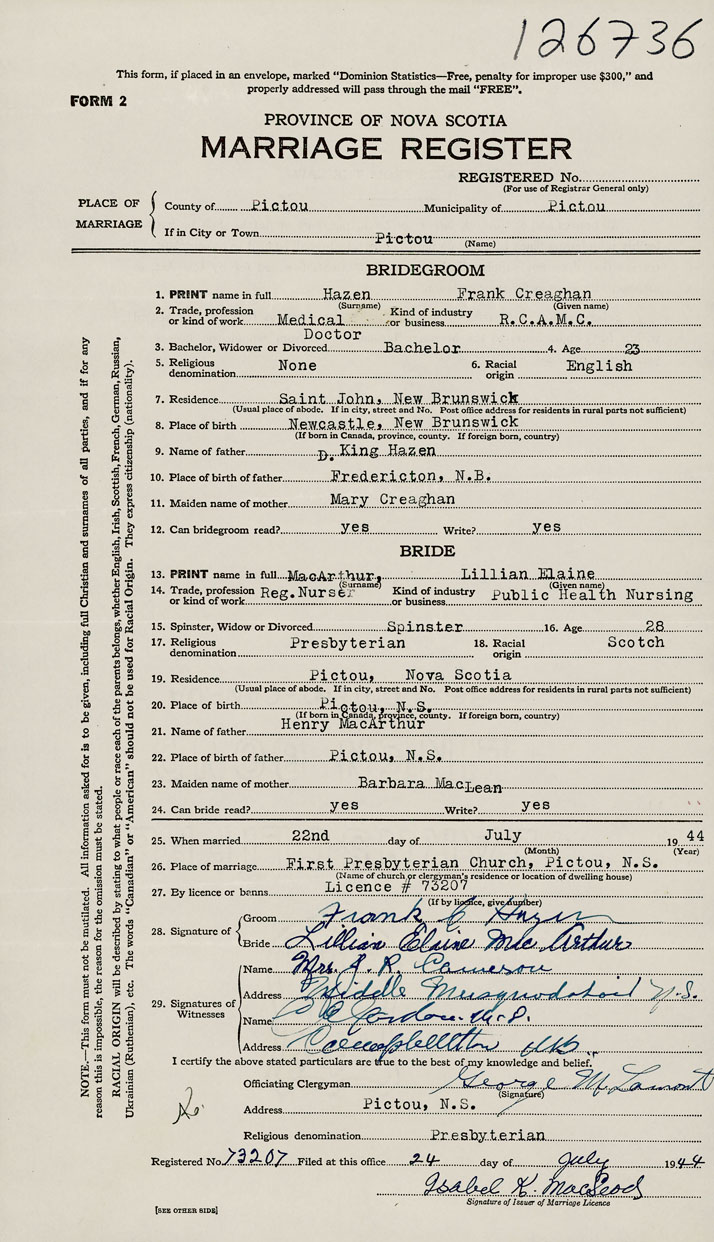 126736
This form, if placed in an envelope, marked "Dominion Statistics—Free, penalty for improper use $300," and
properly addressed will pass through the mail "FREE".
FORM 2
PROVINCE OF NOVA SCOTIA
MARRIAGE REGISTER
REGISTERED No.
(For use of Registrar General only)
PLACE OF MARRIAGE
County of Pictou Municipality of Pictou
If in City or Town Pictou
(Name)
BRIDEGROOM
1. PRINT name in full Hazen Frank Creaghan
(Surname) (Given name)
2. Trade, profession or kind of work Medical Doctor Kind of industry or business R.C.A.M.C.
3. Bachelor, Widower or Divorced Bachelor 4. Age 23
5. Religious denomination None 6. Racial origin English
7. Residence Saint John, New Brunswick
(Usual place of abode. If in city, street and No. Post office address for residents in rural parts not sufficient)
8. Place of birth Newcastle, New Brunswick
(If born in Canada, province, county. If foreign born, country)
9. Name of father D. King Hazen
10. Place of birth of father Fredericton, N.B.
11. Maiden name of mother Mary Creaghan
12. Can bridegroom read? yes Write? yes
BRIDE
13. PRINT name in full MacArthur, Lillian Elaine
(Surname) (Given name)
14. Trade, profession or kind of work Reg.Nurser Kind of industry or business Public Health Nursing
15. Spinster, Widow or Divorced Spinster 16. Age 28
17. Religious denomination Presbyterian 18. Racial origin Scotch
19. Residence Pictou, Nova Scotia
(Usual place of abode. If in city, street and No. Post office address for residents in rural parts not sufficient)
20. Place of birth Pictou, N.S.
(If born in Canada, province, county. If foreign born, country)
21. Name of father Henry MacArthur
22. Place of birth of father Pictou, N.S.
23. Maiden name of mother Barbara MacLean
24. Can bride read? yes Write? yes
25. When married 22nd day of July 1944
(Month) (Year)
26. Place of marriage First Presbyterian Church, Pictou, N.S.
(Name of church or clergyman's residence or location of dwelling house)
27. By licence or banns Licence # 73207
(If by licence, give number)
28. Signature of
Groom Frank C Hazen
Bride Lillian Elaine MacArthur
29. Signatures of Witnesses
Name Mrs. J. R. Cameron
Address Middle Musquodoboit N.S.
Name Jordan M.D.
Address Campbellton N.B.
I certify the above stated particulars are true to the best of my knowledge and belief.
Officiating Clergyman George M Lamont
(Signature)
Address Pictou, N.S.
Religious denomination Presbyterian
Registered No. 73207 Filed at this office 24 day of July 1944
Isabel K. MacLeod
Signature of Issuer of Marriage Licence
[SEE OTHER SIDE]
NOTE.—This form must not be mutilated. All information asked for is to be given, including full Christian and surnames of all parties, and if for any
reason this is impossible, the reason for the omission must be stated.
RACIAL ORIGIN will be described by stating to what people or race each of the parents belongs, whether English, Irish, Scottish, French, German, Russian,
Ukrainian (Ruthenian), etc. The words "Canadian" or "American" should not be used for Racial Origin. They express citizenship (nationality).